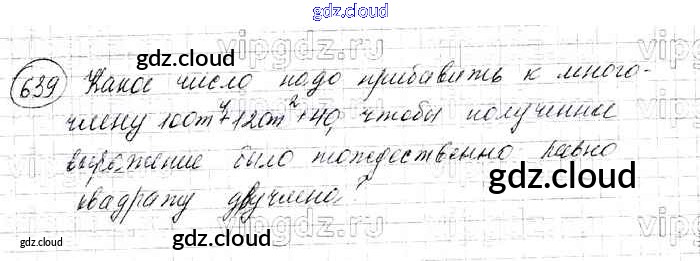 gdz.cloud
vipgdz.ru
gdz.cloud
639 Какое число надо прибавить к много-
члену 100m⁴+120m²+40, чтобы полученное
выражение было тождественно равно
gdz.cloud
квадрату двучлена?
vipgdz
gdz.cloud
gdz.cloud